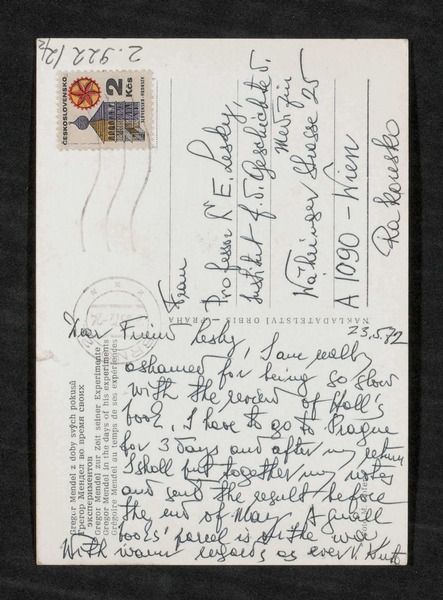 2.922/2/2
ČESKOSLOVENSKO
2 Kčs
Frau
Professor Dr E. Lesky,
Institut f. d. Geschichte d.
Medizin
Währinger Strasse 25
A 1090 - Wien
Rakousko
NAKLADATELSTVÍ ORBIS - PRAHA
23.5.72
Dear Friend Lesky, I am really
ashamed for being so slow
with the review of Hall's
book. I have to go to Prague
for 3 days and after my return
I shall put together my notes
and send the result before
the end of May. A small
books' parcel is on the way
With warm regards as ever V. Kruta
Gregor Mendel z doby svých pokusů
Грегор Мендел во время своих
экспериментов
Gregor Mendel zur Zeit seiner Experimente
Gregor Mendel in the days of his experiments
Grégoire Mendel au temps de ses expériences